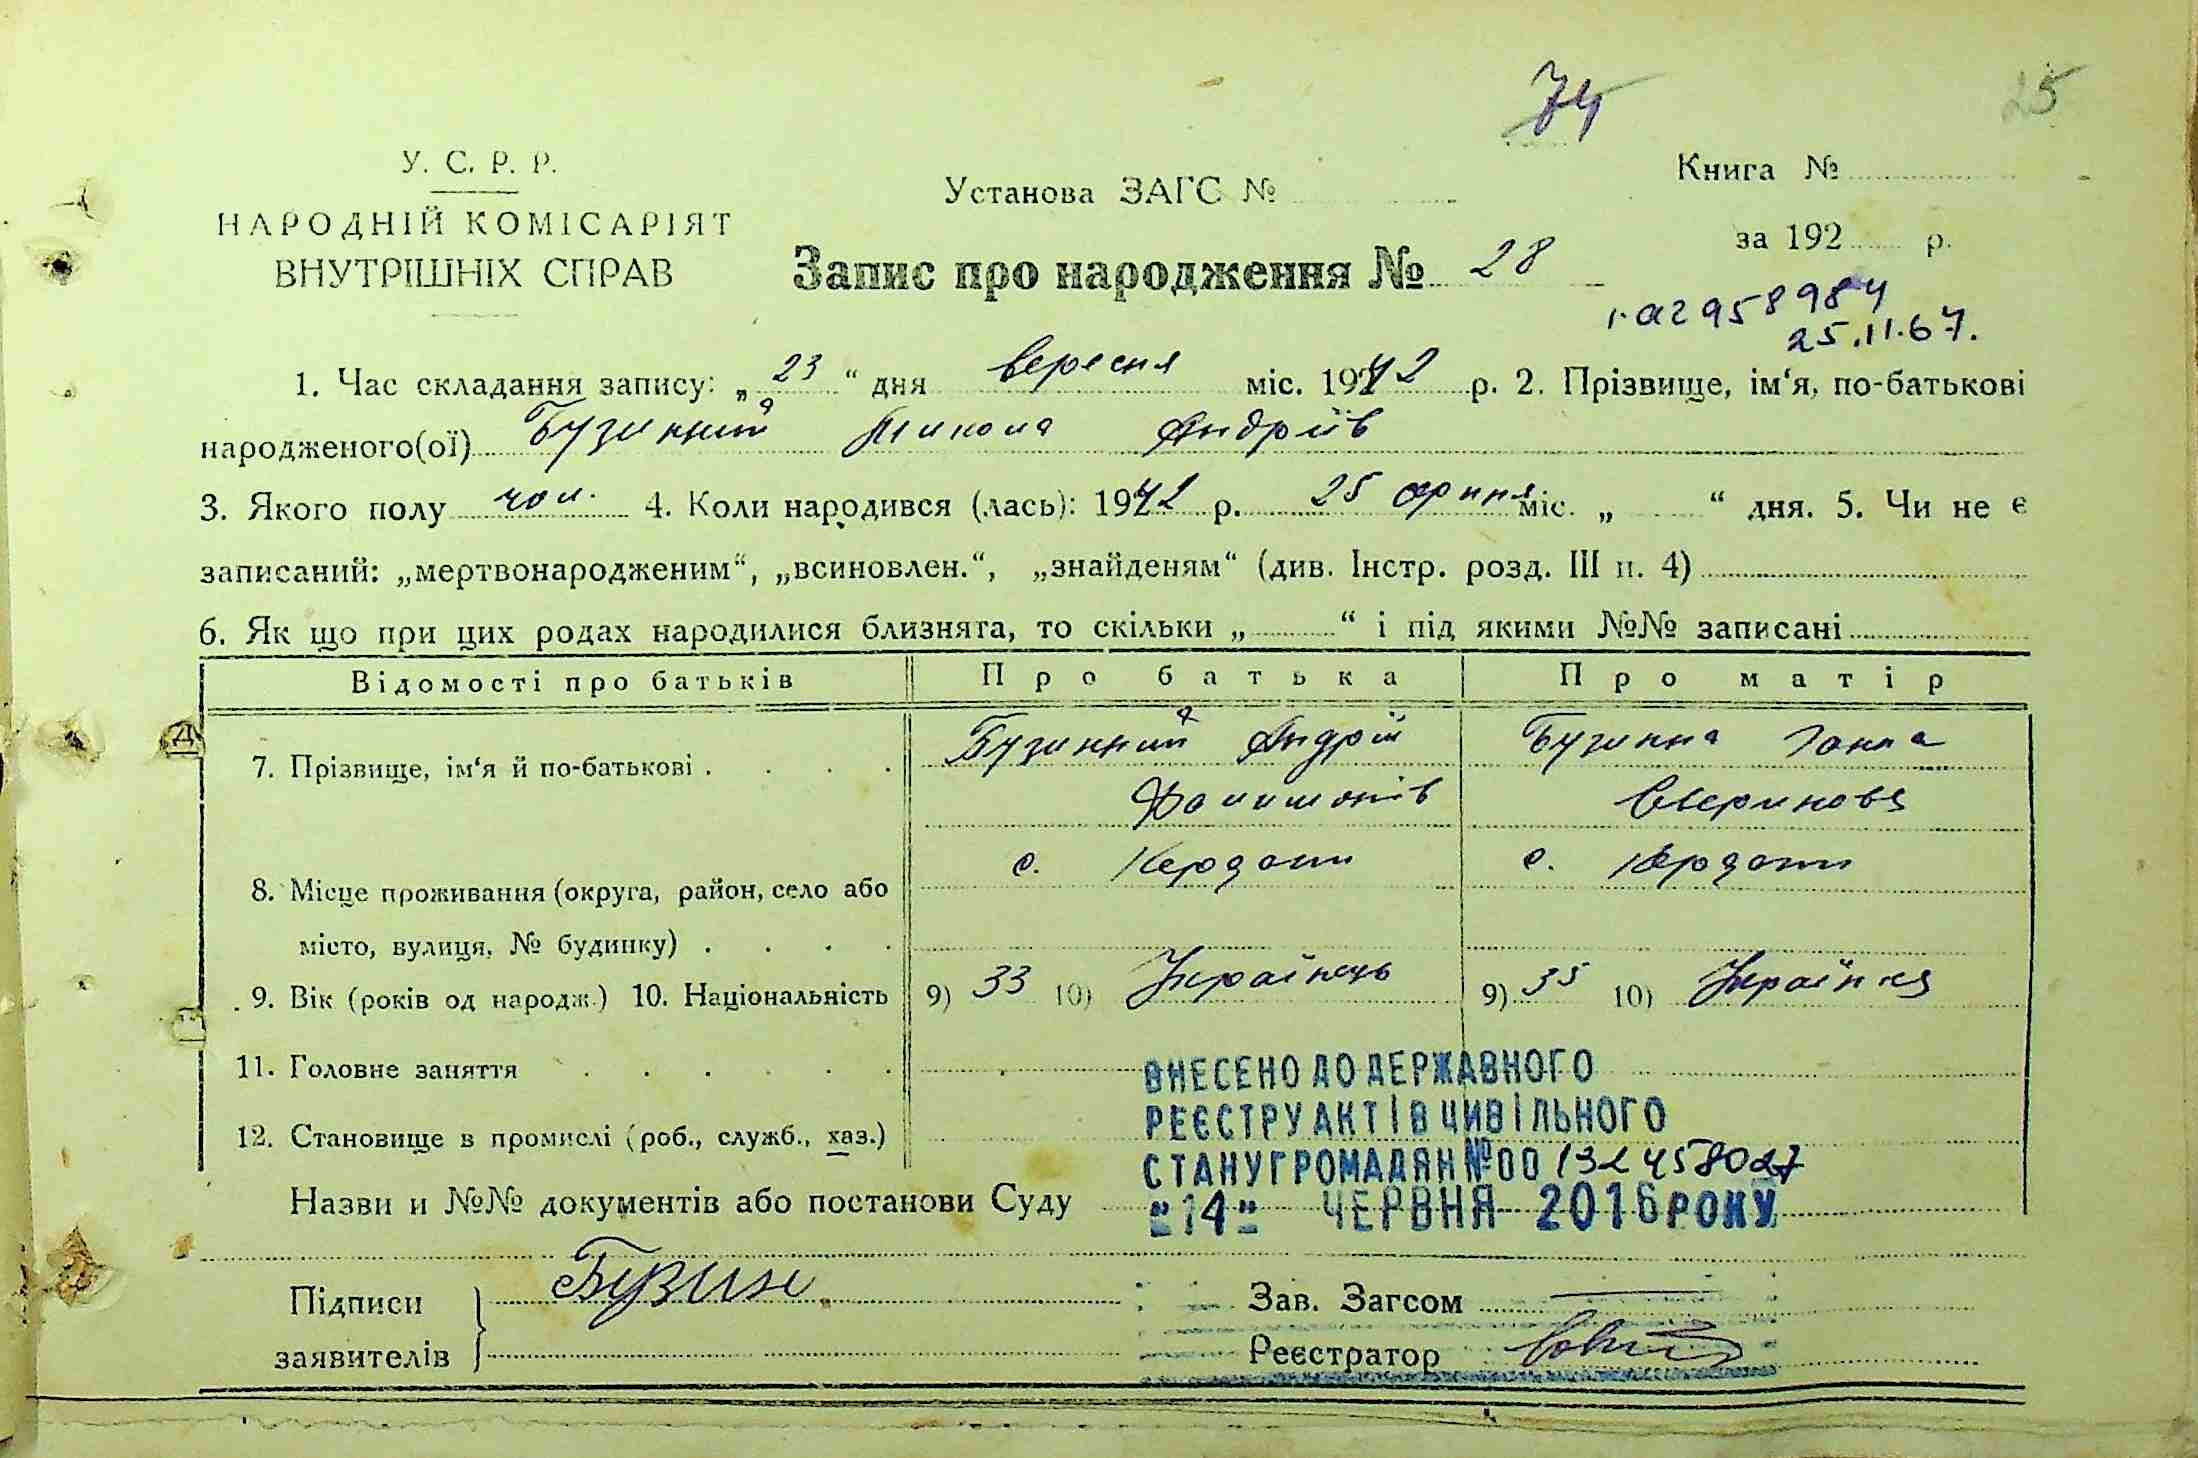 74
25
У. С. Р. Р.
НАРОДНІЙ КОМІСАРІЯТ
ВНУТРІШНІХ СПРАВ
Установа ЗАГС №
Книга №
за 192 р.
Запис про народження № 28
25.11.67.
1. Час складання запису: „ 23 “ дня вересня міс. 1942 р. 2. Прізвище, ім‘я, по-батькові
народженого(ої) Бузинний Микола Андріїв
3. Якого полу чол. 4. Коли народився (лась): 1942 р. 25 серпня міс. „ “ дня. 5. Чи не є
записаний: „мертвонародженим“, „всиновлен.“, „знайденям“ (див. Інстр. розд. III п. 4)
6. Як що при цих родах народилися близнята, то скільки „ “ і під якими №№ записані
Відомості про батьків Про батька Про матір
7. Прізвище, ім‘я й по-батькові . Бузинний Андрій Бузинна Ганна
с. Кердани с. Кердани
8. Місце проживання (округа, район, село або
місто, вулиця, № будинку) .
9. Вік (років од народж.) 10. Національність 9) 33 10) Українець 9) 35 10) Українка
11. Головне заняття
12. Становище в промислі (роб., служб., хаз.)
ВНЕСЕНО ДО ДЕРЖАВНОГО
РЕЄСТРУ АКТІВ ЦИВІЛЬНОГО
СТАНУ ГРОМАДЯН №00132458027
Назви и №№ документів або постанови Суду
"14" ЧЕРВНЯ 2016 РОКУ
Підписи
заявителів
Зав. Загсом
Реєстратор